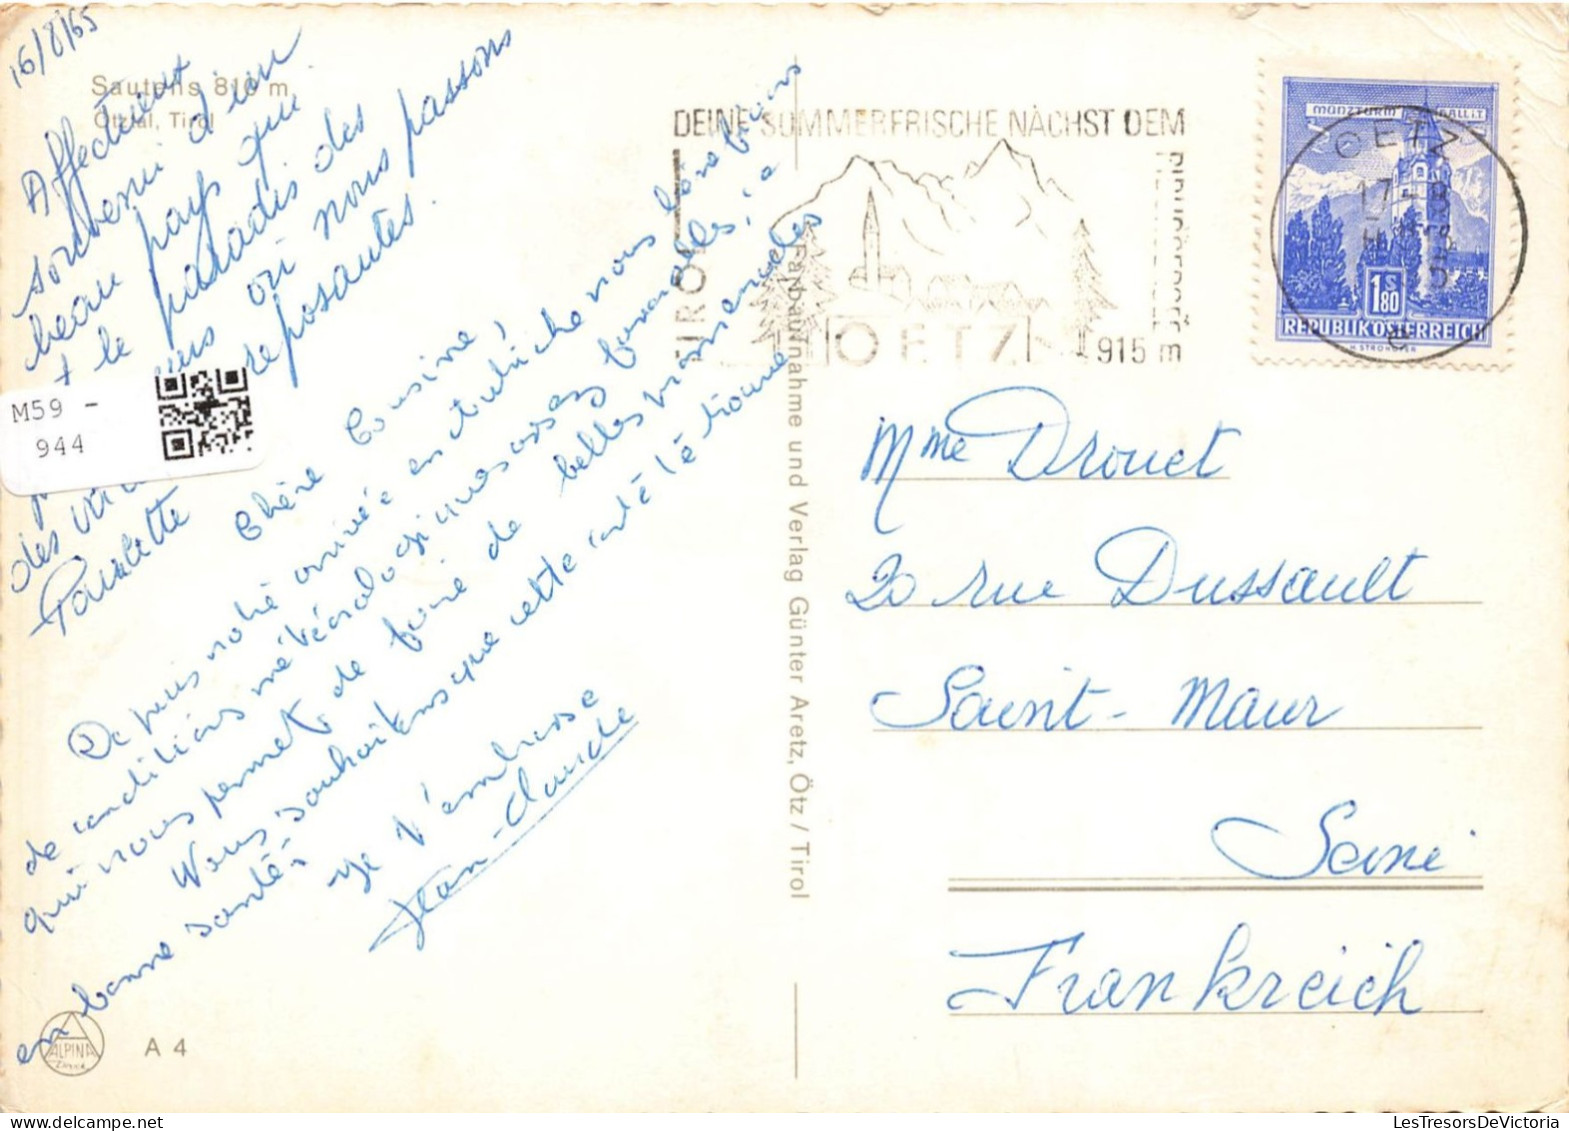 16/8/65
Sautens 810 m
Ötztal, Tirol
Affectueux
souvenir d'un
beau pays qui
est le paradis des
où nous passons
des vac reposantes.
Paulette
M59 -
944
Chère Cousine,
Depuis notre arrivée en Autriche nous bénéficions
de conditions météorologiques assez favorables, ce
qui nous permet de faire de belles promenades
Nous souhaitons que cette carte te trouve
en bonne santé.
Je t'embrasse
Jean-Claude
ALPINA
A 4
Farbaufnahme und Verlag Günter Aretz, Ötz / Tirol
DEINE SOMMERFRISCHE NÄCHST DEM
TIROL
OETZ
915 m
MÜNZTURM HALL i.T.
S
1.80
REPUBLIK ÖSTERREICH
OETZ
a
Mme Drouet
20 rue Dussault
Saint-Maur
Seine
Frankreich
LesTresorsDeVictoria
www.delcampe.net